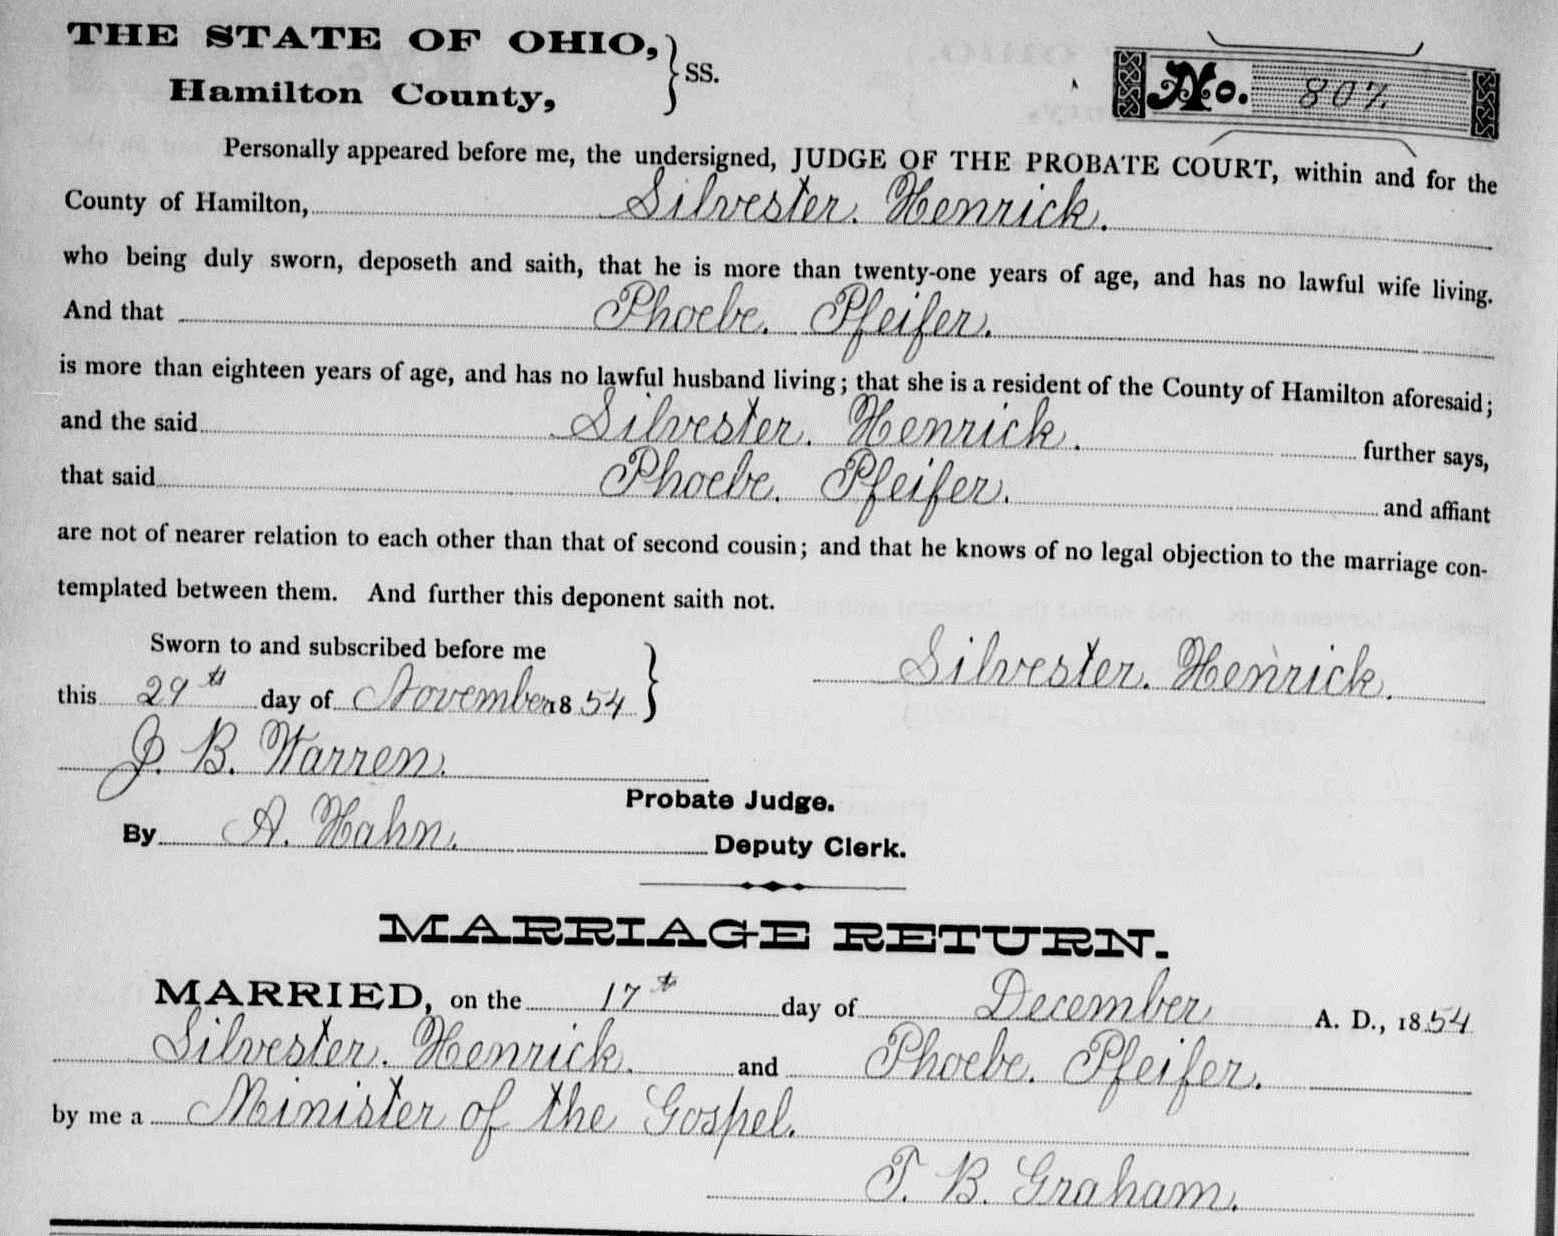 THE STATE OF OHIO,
Hamilton County,
} SS.
No. 807.
Personally appeared before me, the undersigned, JUDGE OF THE PROBATE COURT, within and for the
County of Hamilton, Silvester. Henrick.
who being duly sworn, deposeth and saith, that he is more than twenty-one years of age, and has no lawful wife living.
And that Phoebe. Pfeifer.
is more than eighteen years of age, and has no lawful husband living; that she is a resident of the County of Hamilton aforesaid;
and the said Silvester. Henrick. further says,
that said Phoebe. Pfeifer. and affiant
are not of nearer relation to each other than that of second cousin; and that he knows of no legal objection to the marriage con-
templated between them. And further this deponent saith not.
Sworn to and subscribed before me
this 29th day of November 1854 }
Silvester. Henrick.
J. B. Warren.
Probate Judge.
By A. Hahn. Deputy Clerk.
MARRIAGE RETURN.
MARRIED, on the 17th day of December A. D., 1854
Silvester. Henrick. and Phoebe. Pfeifer.
by me a Minister of the Gospel.
T. B. Graham.